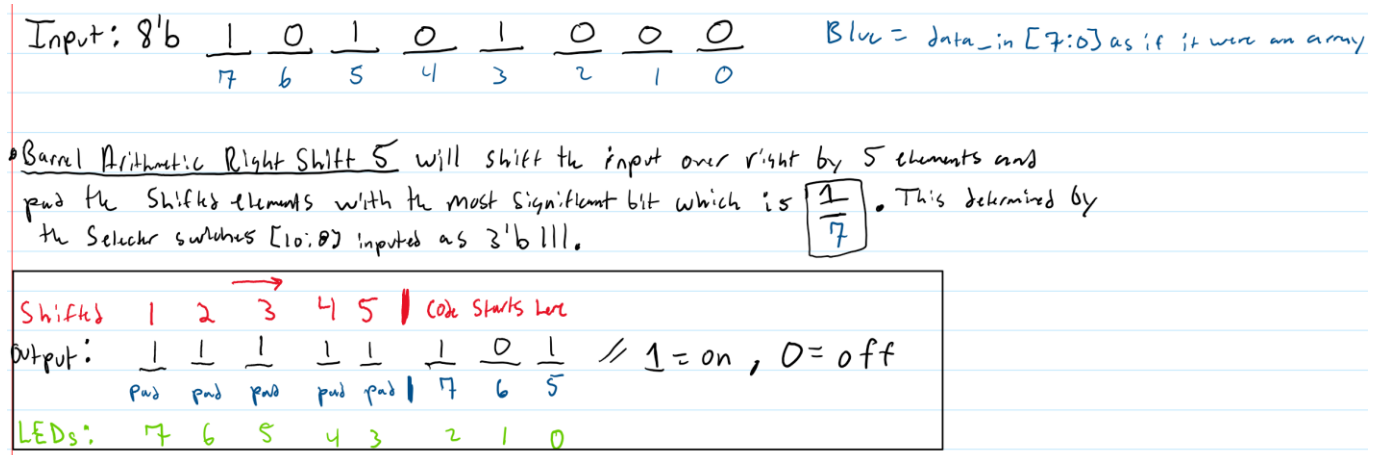 Input: 8'b 1 0 1 0 1 0 0 0 Blue = data_in [7:0] as if it were an array
7 6 5 4 3 2 1 0
Barrel Arithmetic Right Shift 5 will shift the input over right by 5 elements and
pad the shifted elements with the most significant bit which is 1 . This determined by
7
the Selector switches [10:8] inputed as 3'b 111.
Shifted 1 2 3 4 5 | Code Starts here
Output: 1 1 1 1 1 1 0 1 // 1 = on , 0 = off
pad pad pad pad pad | 7 6 5
LEDs: 7 6 5 4 3 2 1 0